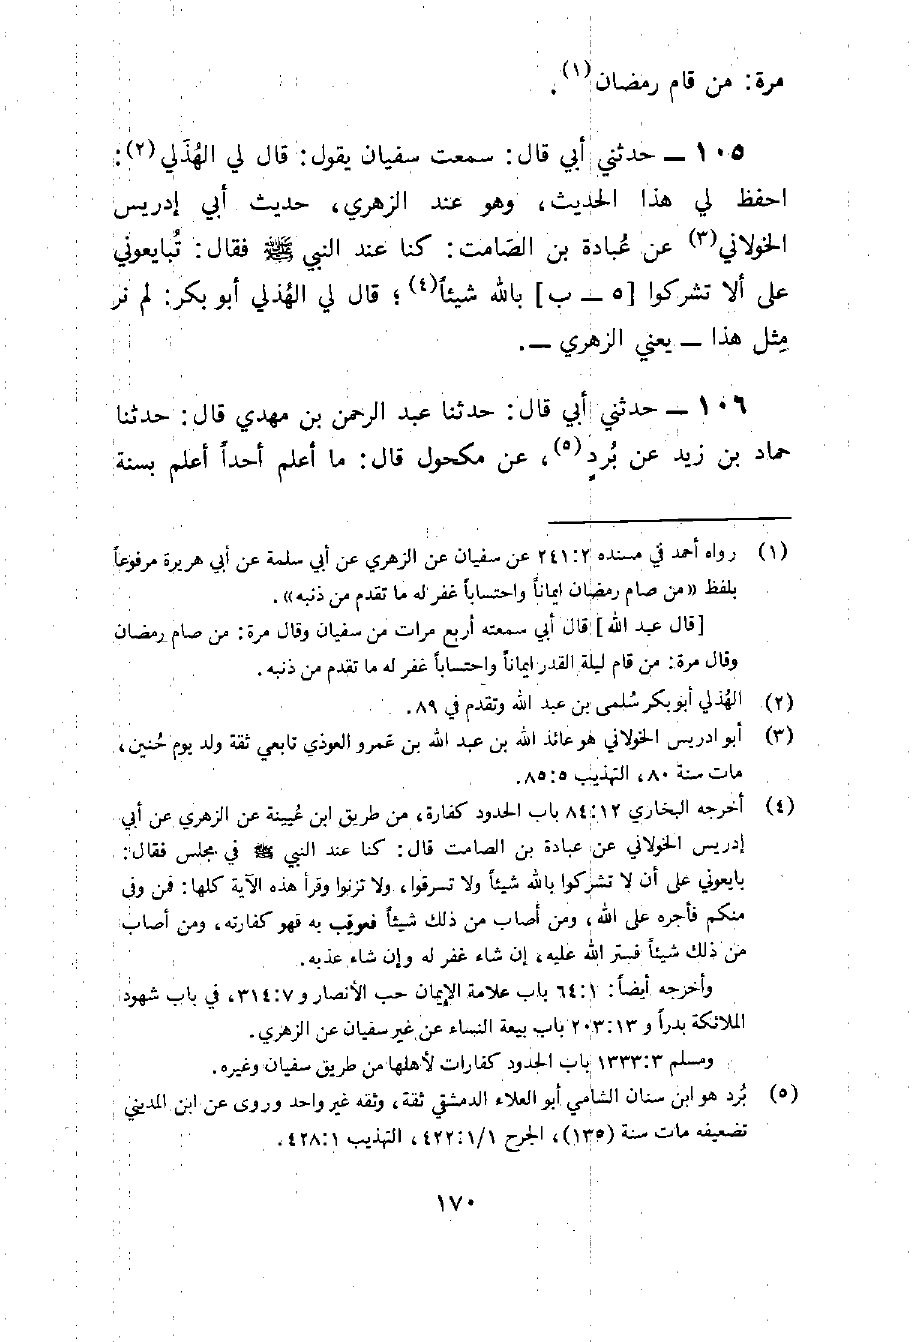 مرة: من قام رمضان(١).
١٠٥ ــ حدثني أبي قال: سمعت سفيان يقول: قال لي الهُذَلي(٢):
احفظ لي هذا الحديث، وهو عند الزهري، حديث أبي إدريس
الخولاني(٣) عن عُبادة بن الصَامت: كنا عند النبي ﷺ فقال: تُبايعوني
على ألا تشركوا [٥ ــ ب] بالله شيئاً(٤)؛ قال لي الهُذلي أبو بكر: لم نر
مِثل هذا ــ يعني الزهري ــ.
١٠٦ ــ حدثني أبي قال: حدثنا عبد الرحمن بن مهدي قال: حدثنا
حماد بن زيد عن بُردٍ(٥)، عن مكحول قال: ما أعلم أحداً أعلم بسنة
(١) رواه أحمد في مسنده ٢٤١:٢ عن سفيان عن الزهري عن أبي سلمة عن أبي هريرة مرفوعاً
بلفظ «من صام رمضان ايماناً واحتساباً غفر له ما تقدم من ذنبه».
[قال عبد الله] قال أبي سمعته أربع مرات من سفيان وقال مرة: من صام رمضان
وقال مرة: من قام ليلة القدر ايماناً واحتساباً غفر له ما تقدم من ذنبه.
(٢) الهُذلي أبو بكر سُلمى بن عبد الله وتقدم في ٨٩.
(٣) أبو ادريس الخولاني هو عائذ الله بن عبد الله بن عمرو العوذي تابعي ثقة ولد يوم حُنين،
مات سنة ٨٠، التهذيب ٨٥:٥.
(٤) أخرجه البخاري ٨٤:١٢ باب الحدود كفارة، من طريق ابن عُيينة عن الزهري عن أبي
إدريس الخولاني عن عبادة بن الصامت قال: كنا عند النبي ﷺ في مجلس فقال:
بايعوني على أن لا تشركوا بالله شيئاً ولا تسرقوا، ولا تزنوا وقرأ هذه الآية كلها: فمن وفى
منكم فأجره على الله، ومن أصاب من ذلك شيئاً فعوقب به فهو كفارته، ومن أصاب
من ذلك شيئاً فستر الله عليه، إن شاء غفر له وإن شاء عذبه.
وأخرجه أيضاً: ٦٤:١ باب علامة الإيمان حب الأنصار و ٣١٤:٧، في باب شهود
الملائكة بدراً و ٢٠٣:١٣ باب بيعة النساء عن غير سفيان عن الزهري.
ومسلم ١٣٣٣:٣ باب الحدود كفارات لأهلها من طريق سفيان وغيره.
(٥) بُرد هو ابن سنان الشامي أبو العلاء الدمشقي ثقة، وثقه غير واحد وروى عن ابن المديني
تضعيفه مات سنة (١٣٥)، الجرح ٤٢٢:١/١، التهذيب ٤٢٨:١.
١٧٠